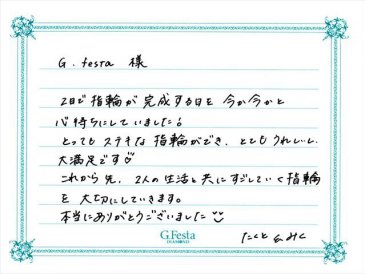 G.festa 様
2日で指輪が完成する日を今か今かと
心待ちにしていました!
とってもステキな指輪ができ、とてもうれしいし、
大満足です♡
これから先、2人の生活と共にすごしていく指輪
を大切にしていきます。
本当にありがとうございました
G.Festa
DIAMOND
たくと & みく